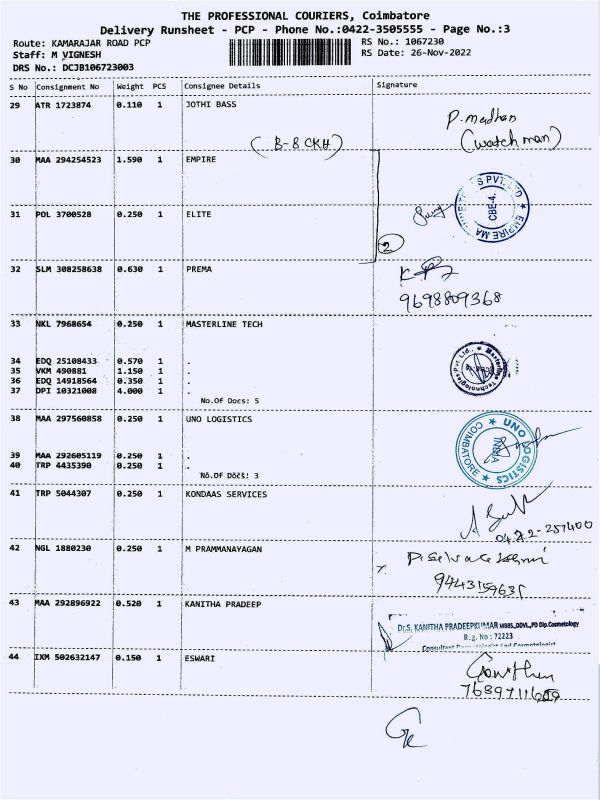 THE PROFESSIONAL COURIERS, Coimbatore
Delivery Runsheet - PCP - Phone No.:0422-3505555 - Page No.:3
Route: KAMARAJAR ROAD PCP RS No.: 1067230
Staff: M VIGNESH RS Date: 26-Nov-2022
DRS No.: DCJB106723003
S No Consignment No Weight PCS Consignee Details Signature
29 ATR 1723874 0.110 1 JOTHI BASS
P. madhan
(B-8 CKH) (watch man)
30 MAA 294254523 1.590 1 EMPIRE
CBE-4.
31 POL 3700528 0.250 1 ELITE
2
32 SLM 308258638 0.630 1 PREMA
9698809368
33 NKL 7968654 0.250 1 MASTERLINE TECH
Masterline Technologies Pvt. Ltd.,
34 EDQ 25108433 0.570 1 .
35 VKM 490881 1.150 1 .
36 EDQ 14918564 0.350 1 .
37 DPI 10321008 4.000 1 .
No.Of Docs: 5
38 MAA 297560858 0.250 1 UNO LOGISTICS
UNO LOGISTICS COIMBATORE INDIA
39 MAA 292605119 0.250 1 .
40 TRP 4435390 0.250 1 .
No.Of Docs: 3
41 TRP 5044307 0.250 1 KONDAAS SERVICES
42 NGL 1880230 0.250 1 M PRAMMANAYAGAN
43 MAA 292896922 0.520 1 KANITHA PRADEEP
Dr.S. KANITHA PRADEEPKUMAR MBBS.,DDVL.,PD Dip.Cosmetology
Reg. No : 72223
44 IXM 502632147 0.150 1 ESWARI